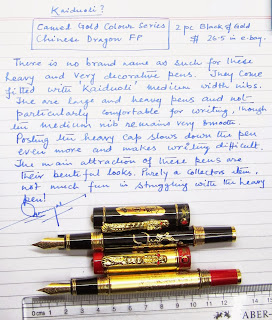 Kaiduoli?
Camel Gold Colour Series
Chinese Dragon FP
2 pc Black & Gold
$ 26.5 in e-bay.
There is no brand name as such for these
heavy and very decorative pens. They come
fitted with Kaiduoli medium width nibs.
The are large and heavy pens and not
particularly comfortable for writing, though
the medium nib remains very smooth
Posting the heavy cap slows down the pen
even more and makes writing difficult.
The main attraction of these pens are
their beutiful looks. Purely a collectors item.
not much fun in struggling with the heavy
pen!
0 cm 1 2 3 4 5 6 7 8 9 10 11 12 13 14 15
ABER-